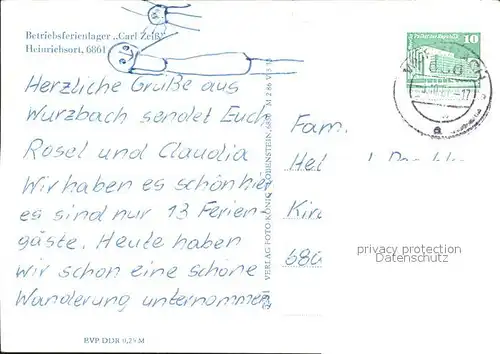 Betriebsferienlager „Carl Zeiß"
Heinrichsort, 6861
Herzliche Grüße aus
Wurzbach sendet Euch
Rosel und Claudia
Wir haben es schön hier
es sind nur 13 Ferien-
gäste. Heute haben
wir schon eine schöne
Wanderung unternommen
EVP DDR 0,25 M
VERLAG FOTO-KÖNIG LOBENSTEIN, 685
Fam.
Kir
10
privacy protection
Datenschutz